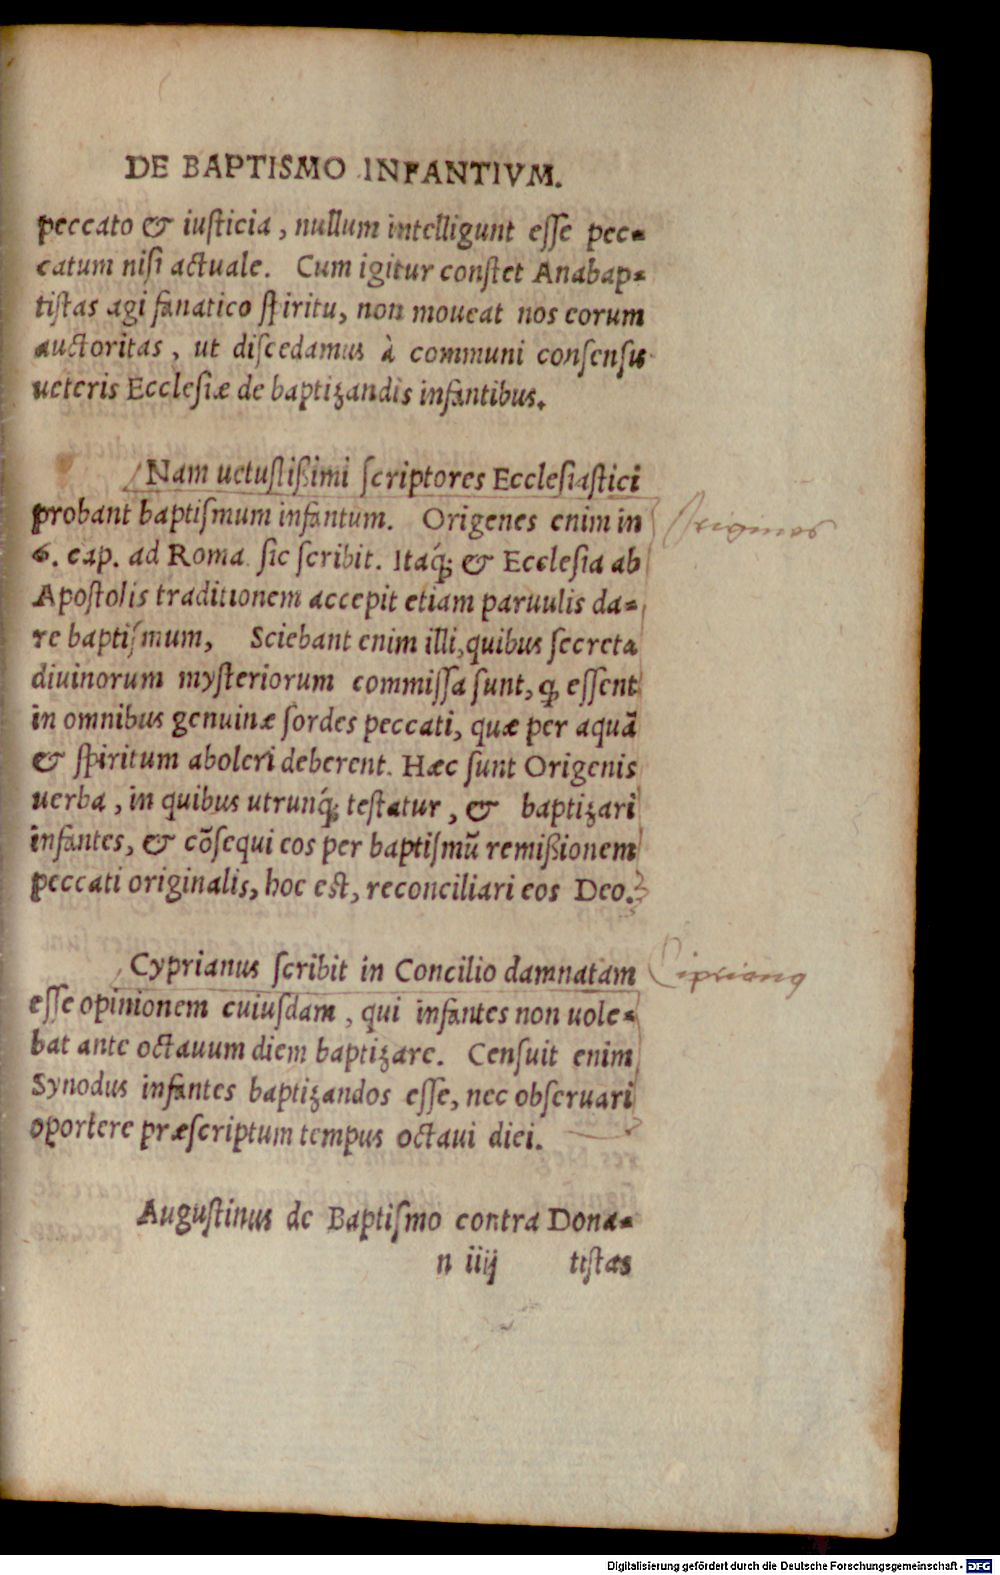 DE BAPTISMO INFANTIVM.
peccato & iuſticia, nullum intelligunt eſſe pec-
catum niſi actuale. Cum igitur conſtet Anabap-
tiſtas agi fanatico ſpiritu, non moueat nos eorum
auctoritas, ut diſcedamus à communi conſenſu
ueteris Eccleſiæ de baptizandis infantibus.
Nam uetuſtißimi ſcriptores Eccleſiaſtici
probant baptiſmum infantum. Origenes enim in
Origines
6. cap. ad Roma. ſic ſcribit. Itaq́; & Eccleſia ab
Apoſtolis traditionem accepit etiam paruulis da-
re baptiſmum, Sciebant enim illi, quibus ſecreta
diuinorum myſteriorum commiſſa ſunt, ꝙ eſſent
in omnibus genuinæ ſordes peccati, quæ per aquã
& ſpiritum aboleri deberent. Hæc ſunt Origenis
uerba, in quibus utrunq́; teſtatur, & baptizari
infantes, & cõſequi eos per baptiſmũ remißionem
peccati originalis, hoc eſt, reconciliari eos Deo.
Cyprianus ſcribit in Concilio damnatam
Ciprianꝰ
eſſe opinionem cuiuſdam, qui infantes non uole-
bat ante octauum diem baptizare. Cenſuit enim
Synodus infantes baptizandos eſſe, nec obſeruari
oportere præſcriptum tempus octaui diei.
Auguſtinus de Baptiſmo contra Dona-
n iiij tiſtas
Digitalisierung gefördert durch die Deutsche Forschungsgemeinschaft - DFG